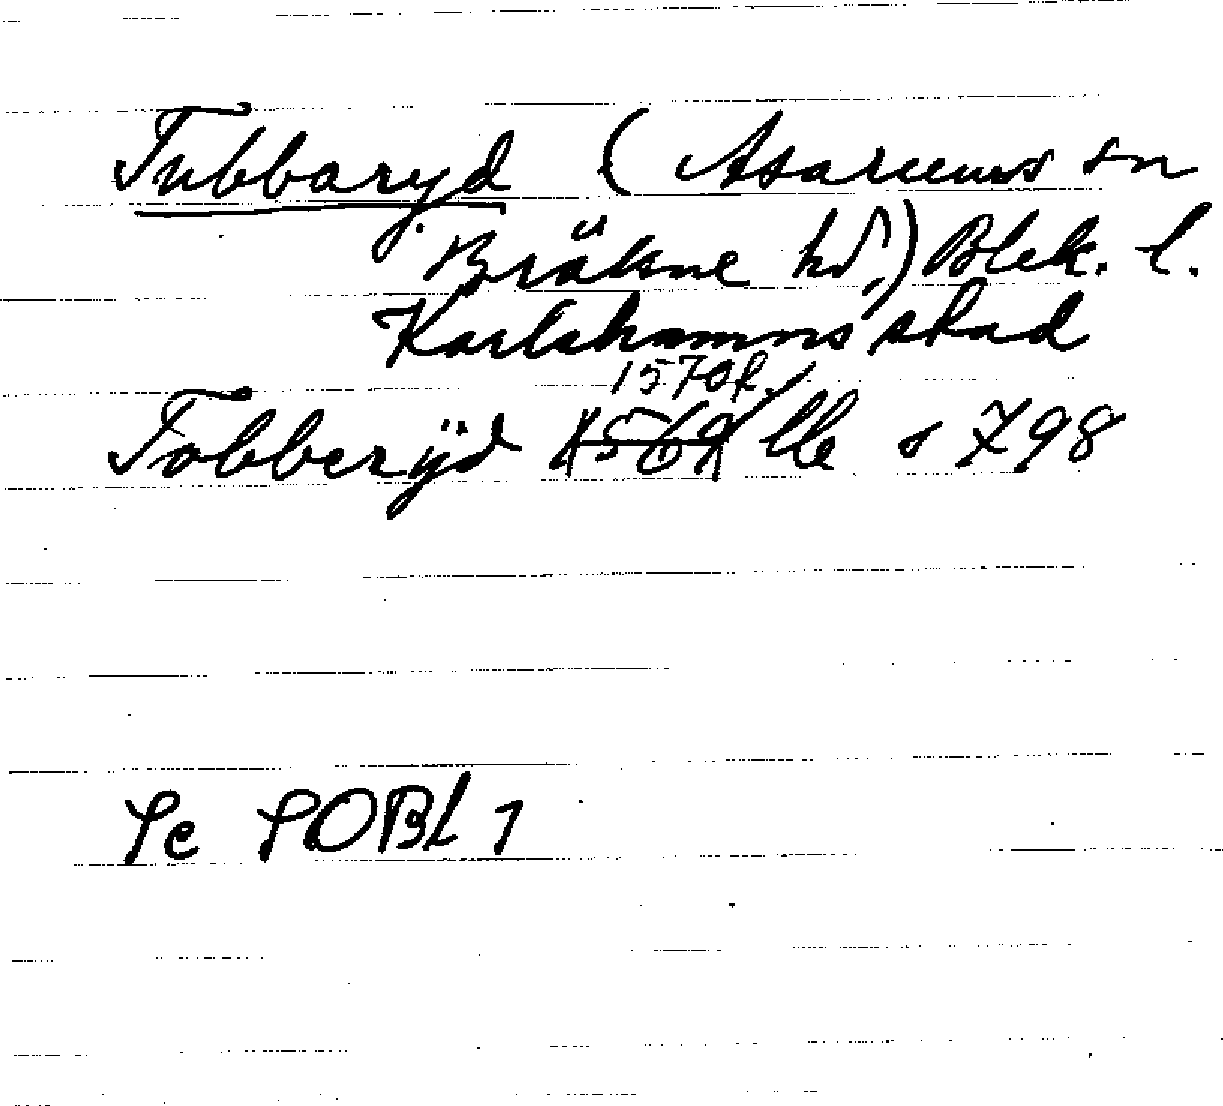 Tubbaryd (Asarums sn
Bräkne hd,) Blek. l.
Karlshamns stad
1570 R.
Tobberÿd 1569 lle s 798
Se SOBL 1